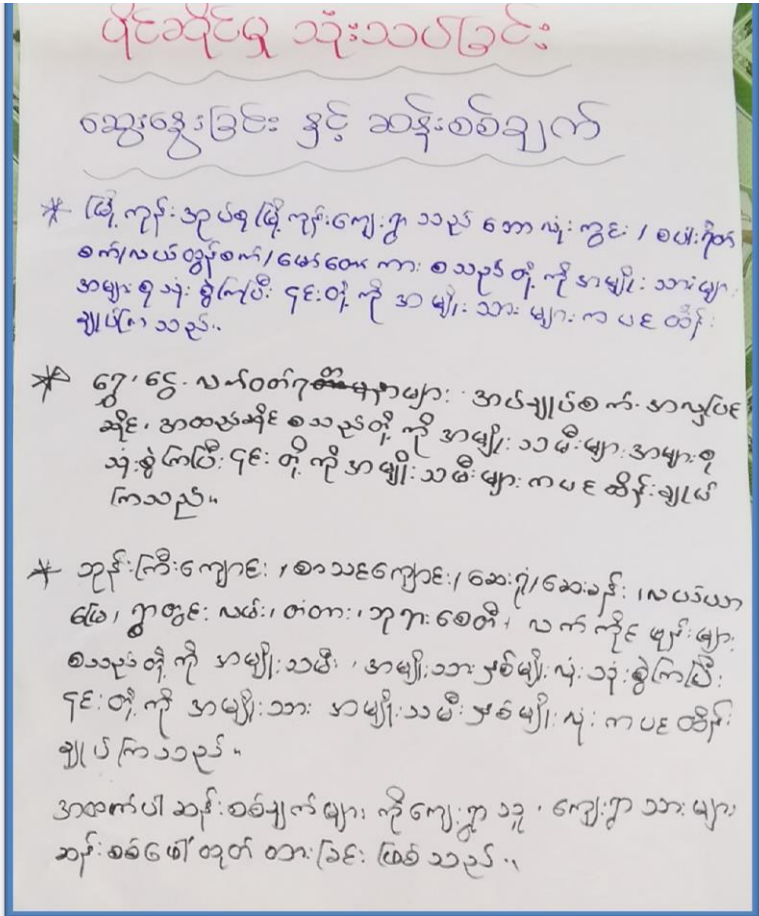 ပိုင်ဆိုင်မှု သုံးသပ်ခြင်း
ဆွေးနွေးခြင်း နှင့် ဆန်းစစ်ချက်
* မြို့ကုန်းအုပ်စု မြို့ကုန်းကျေးရွာ သည် ဘောလုံးကွင်း / စပါးရိတ်
စက်/လယ်ထွန်စက်/မော်တော်ကား စသည်တို့ကို အမျိုးသားများ
အများစု သုံးစွဲကြပြီး ၎င်းတို့ကို အမျိုးသားများက ပင ထိန်း
ချုပ်ကြသည်။
* ရွှေ၊ ငွေ၊ လက်ဝတ်ရတနာများ အပ်ချုပ်စက်၊ အလှပြင်
ဆိုင်၊ အထည်ဆိုင် စသည်တို့ကို အမျိုးသမီးများ အများစု
သုံးစွဲကြပြီး ၎င်းတို့ကို အမျိုးသမီးများကပင ထိန်းချုပ်
ကြသည်။
* ဘုန်းကြီးကျောင်း ၊ စာသင်ကျောင်း၊ ဆေးရုံ/ဆေးခန်း ၊ လယ်ယာ
မြေ၊ ရွာတွင်းလမ်း၊ တံတား၊ ဘုရားစေတီ၊ လက်ကိုင်ဖုန်းများ
စသည်တို့ကို အမျိုးသမီး ၊ အမျိုးသားနှစ်မျိုးလုံး သုံးစွဲကြပြီး
၎င်းတို့ကို အမျိုးသား အမျိုးသမီးနှစ်မျိုးလုံးကပင ထိန်း
ချုပ်ကြသည်။
အထက်ပါ ဆန်းစစ်ချက်များကို ကျေးရွာသူ ၊ ကျေးရွာသားများ
ဆန်းစစ်ဖော်ထုတ် ထားခြင်း ဖြစ်သည်။